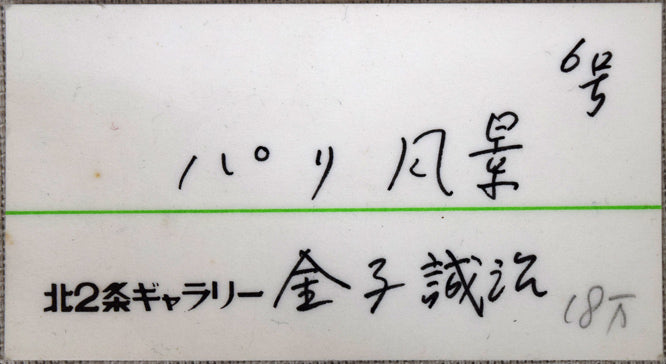 6号
パリ風景
北2条ギャラリー 金子誠治
18万